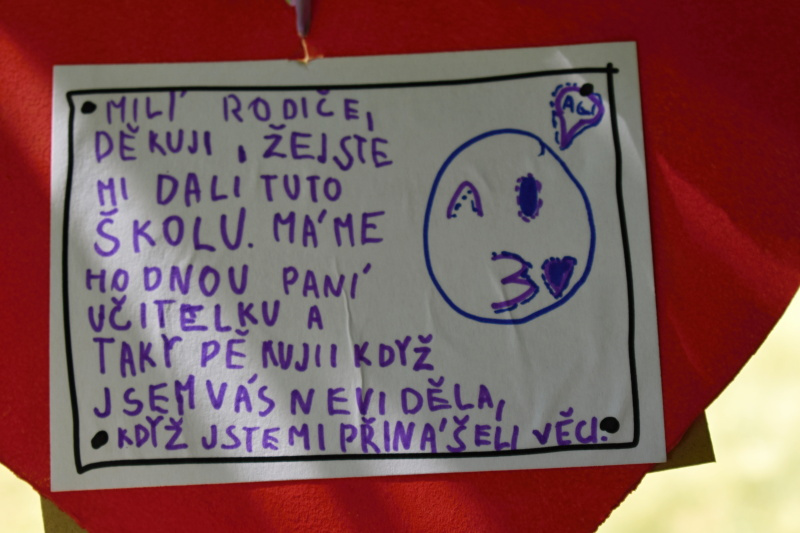 MILÍ RODIČE,
DĚKUJI, ŽEJSTE
MI DALI TUTO
ŠKOLU. MÁME
HODNOU PANÍ
UČITELKU A
TAKY PĚKUJII KDYŽ
JSEM VÁS NEVIDĚLA,
KDYŽ JSTE MI PŘINÁŠELI VĚCI.